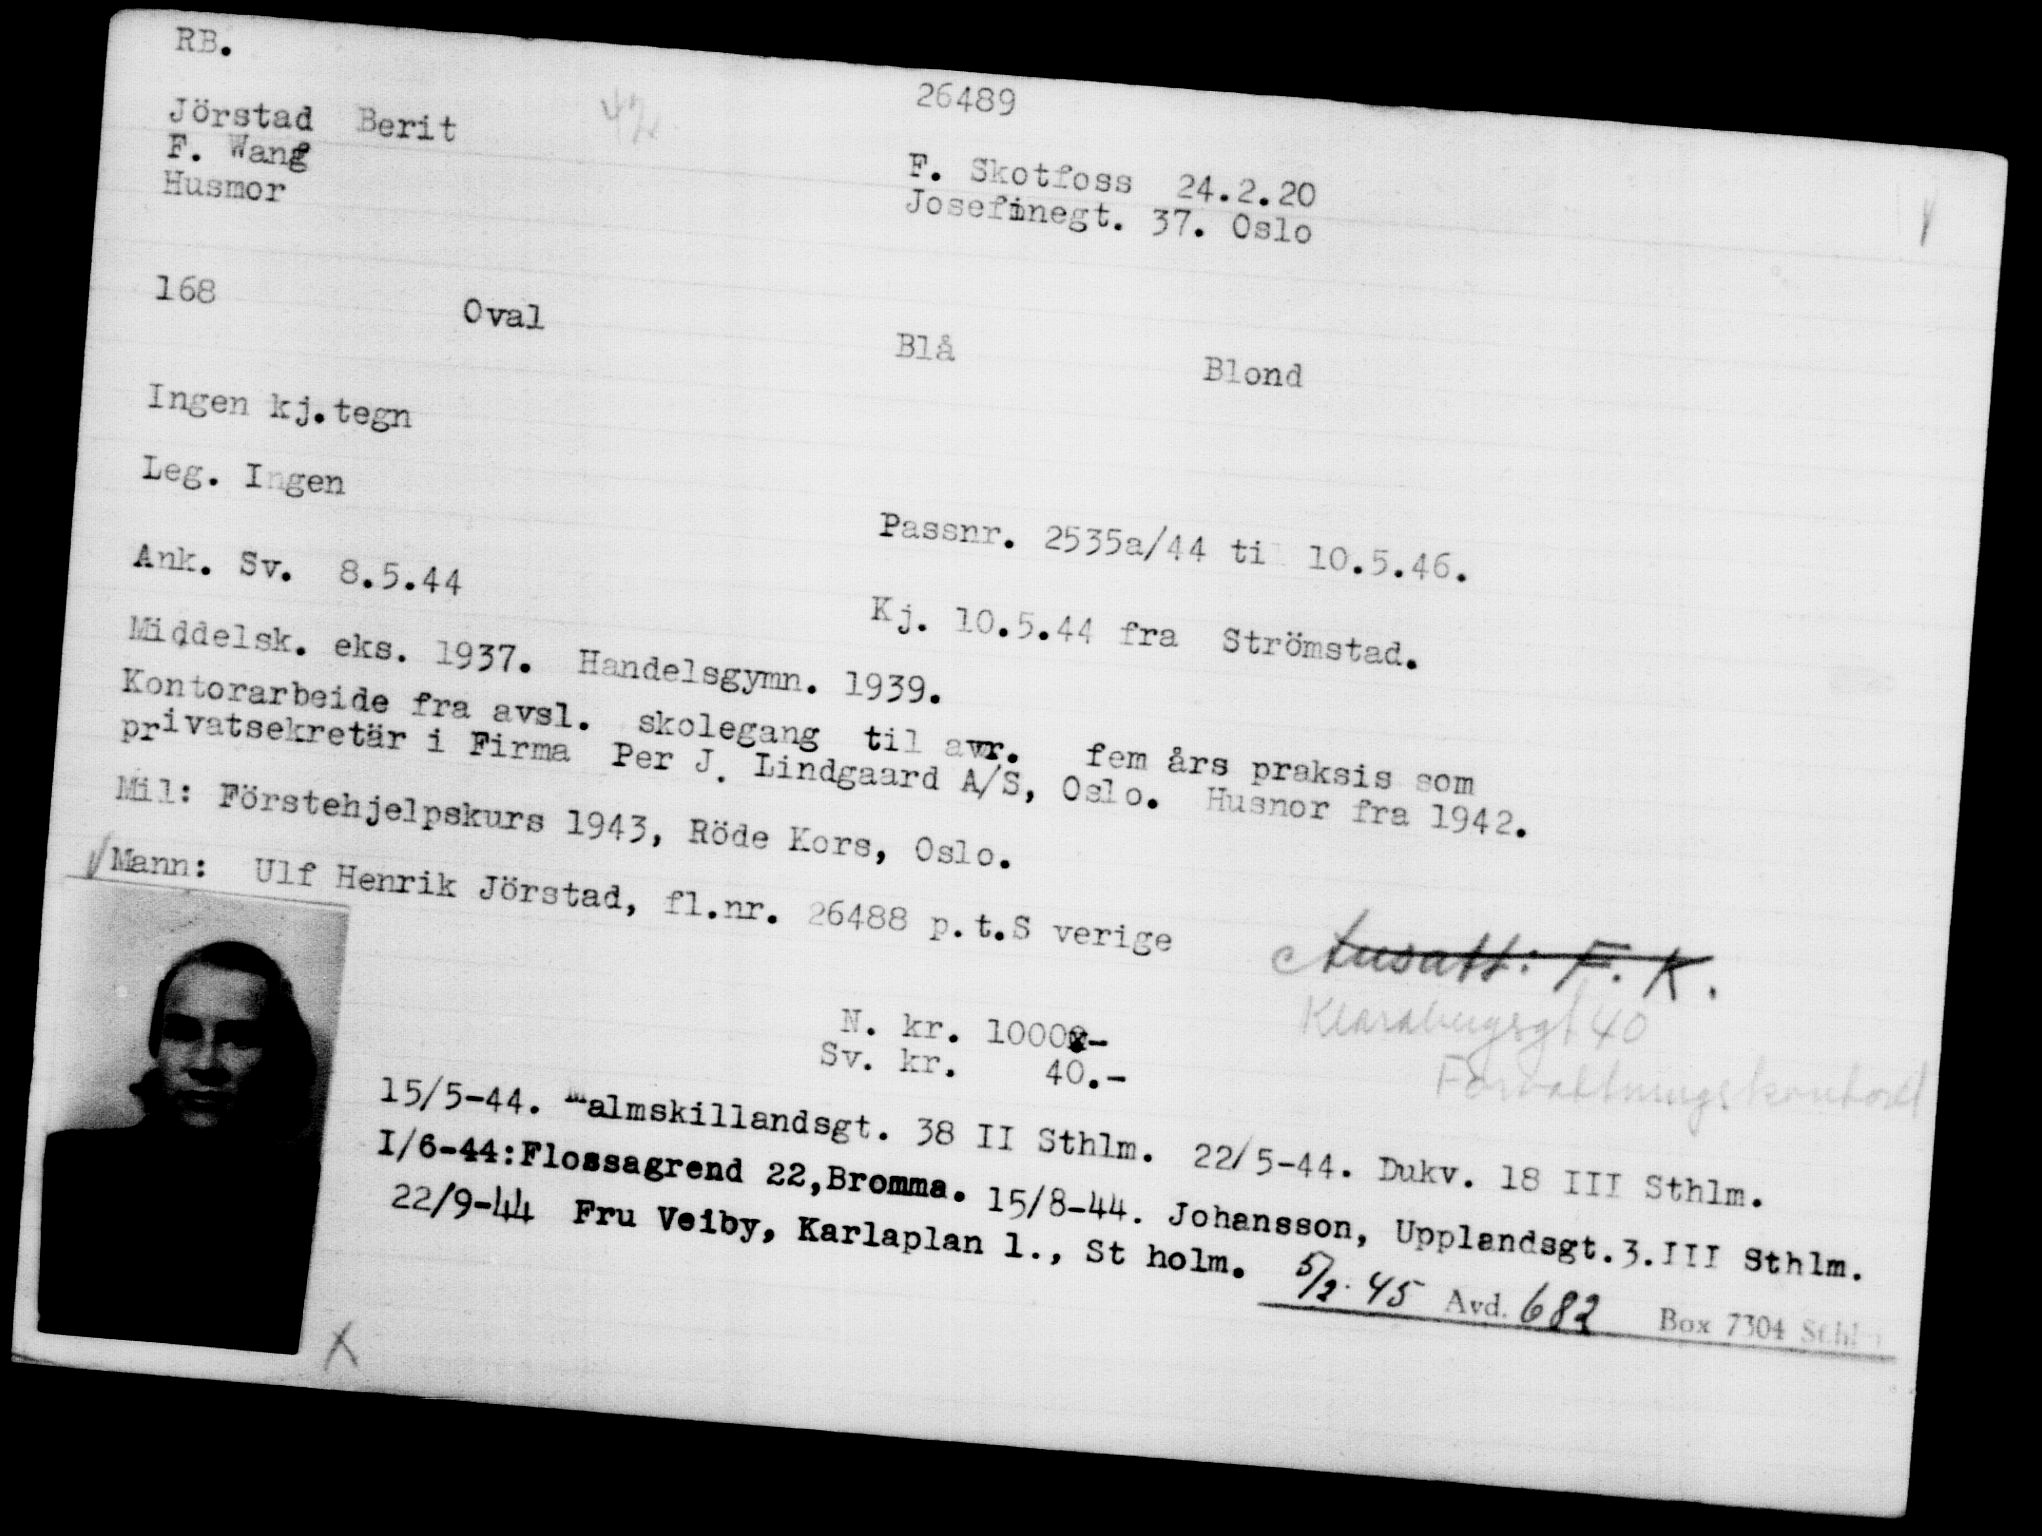 RB.
26489
Jörstad Berit 42
F. Wang
F. Skotfoss 24.2.20
Husmor
Josefinegt. 37. Oslo
168 Oval Blå Blond
Ingen kj.tegn
Leg. Ingen
Passnr. 2535a/44 til 10.5.46.
Ank. Sv. 8.5.44
Kj. 10.5.44 fra Strömstad.
Middelsk. eks. 1937. Handelsgymn. 1939.
Kontorarbeide fra avsl. skolegang til avr. fem års praksis som
privatsekretär i Firma Per J. Lindgaard A/S, Oslo. Husnor fra 1942.
Mil: Förstehjelpskurs 1943, Röde Kors, Oslo.
Mann: Ulf Henrik Jörstad, fl.nr. 26488 p.t.S verige
Ansatt: F. K.
Klarabergsgt 40
Forvaltningskontoret
N. kr. 1000.-
Sv. kr. 40.-
15/5-44. Malmskillandsgt. 38 II Sthlm. 22/5-44. Dukv. 18 III Sthlm.
I/6-44:Flossagrend 22,Bromma. 15/8-44. Johansson, Upplandsgt.3.III Sthlm.
22/9-44 Fru Veiby, Karlaplan 1., St holm.
5/2.45 Avd. 682 Box 7304 Sthlm
X